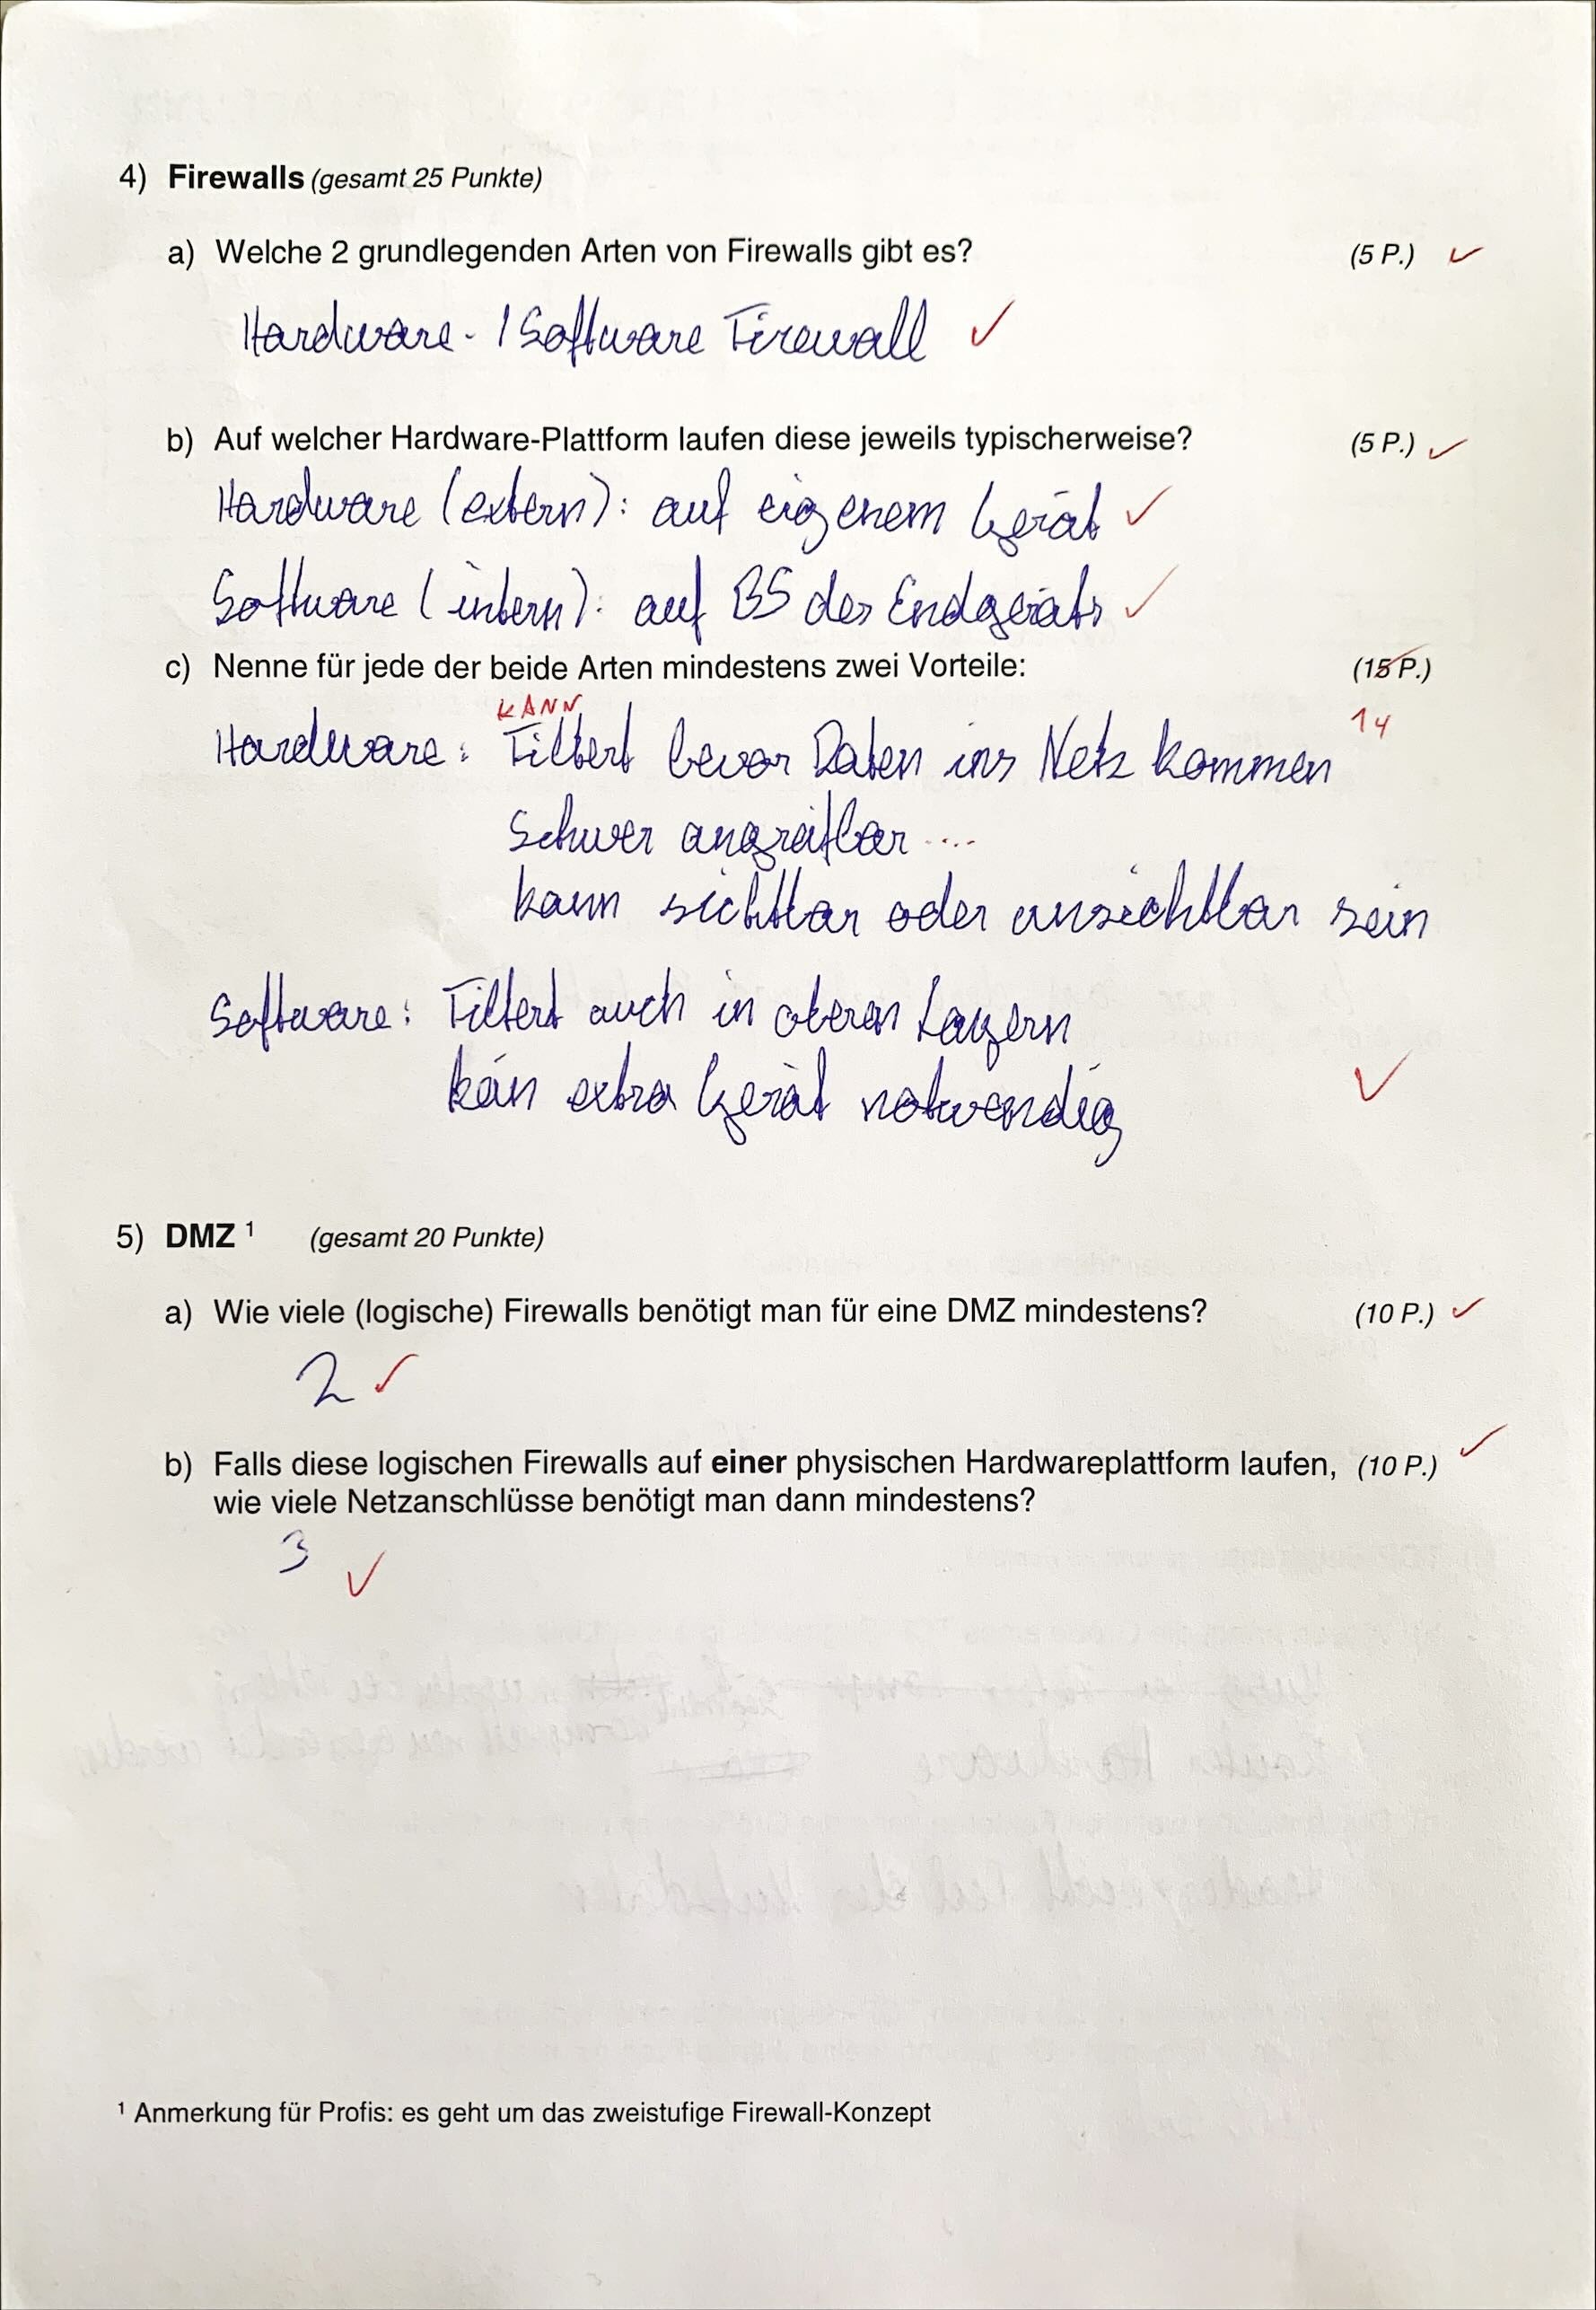 4) Firewalls (gesamt 25 Punkte)
a) Welche 2 grundlegenden Arten von Firewalls gibt es? (5 P.) ✓
Hardware- / Software Firewall ✓
b) Auf welcher Hardware-Plattform laufen diese jeweils typischerweise? (5 P.) ✓
Hardware (extern): auf eigenem Gerät ✓
Software (intern): auf BS des Endgeräts ✓
c) Nenne für jede der beide Arten mindestens zwei Vorteile: (15 P.)
KANN
14
Hardware: Filtert bevor Daten ins Netz kommen
Schwer angreifbar ....
kann sichtbar oder unsichtbar sein
Software: Filtert auch in oberen Layern
kein extra Gerät notwendig ✓
5) DMZ ¹ (gesamt 20 Punkte)
a) Wie viele (logische) Firewalls benötigt man für eine DMZ mindestens? (10 P.) ✓
2 ✓
b) Falls diese logischen Firewalls auf einer physischen Hardwareplattform laufen, (10 P.) ✓
wie viele Netzanschlüsse benötigt man dann mindestens?
3 ✓
¹ Anmerkung für Profis: es geht um das zweistufige Firewall-Konzept